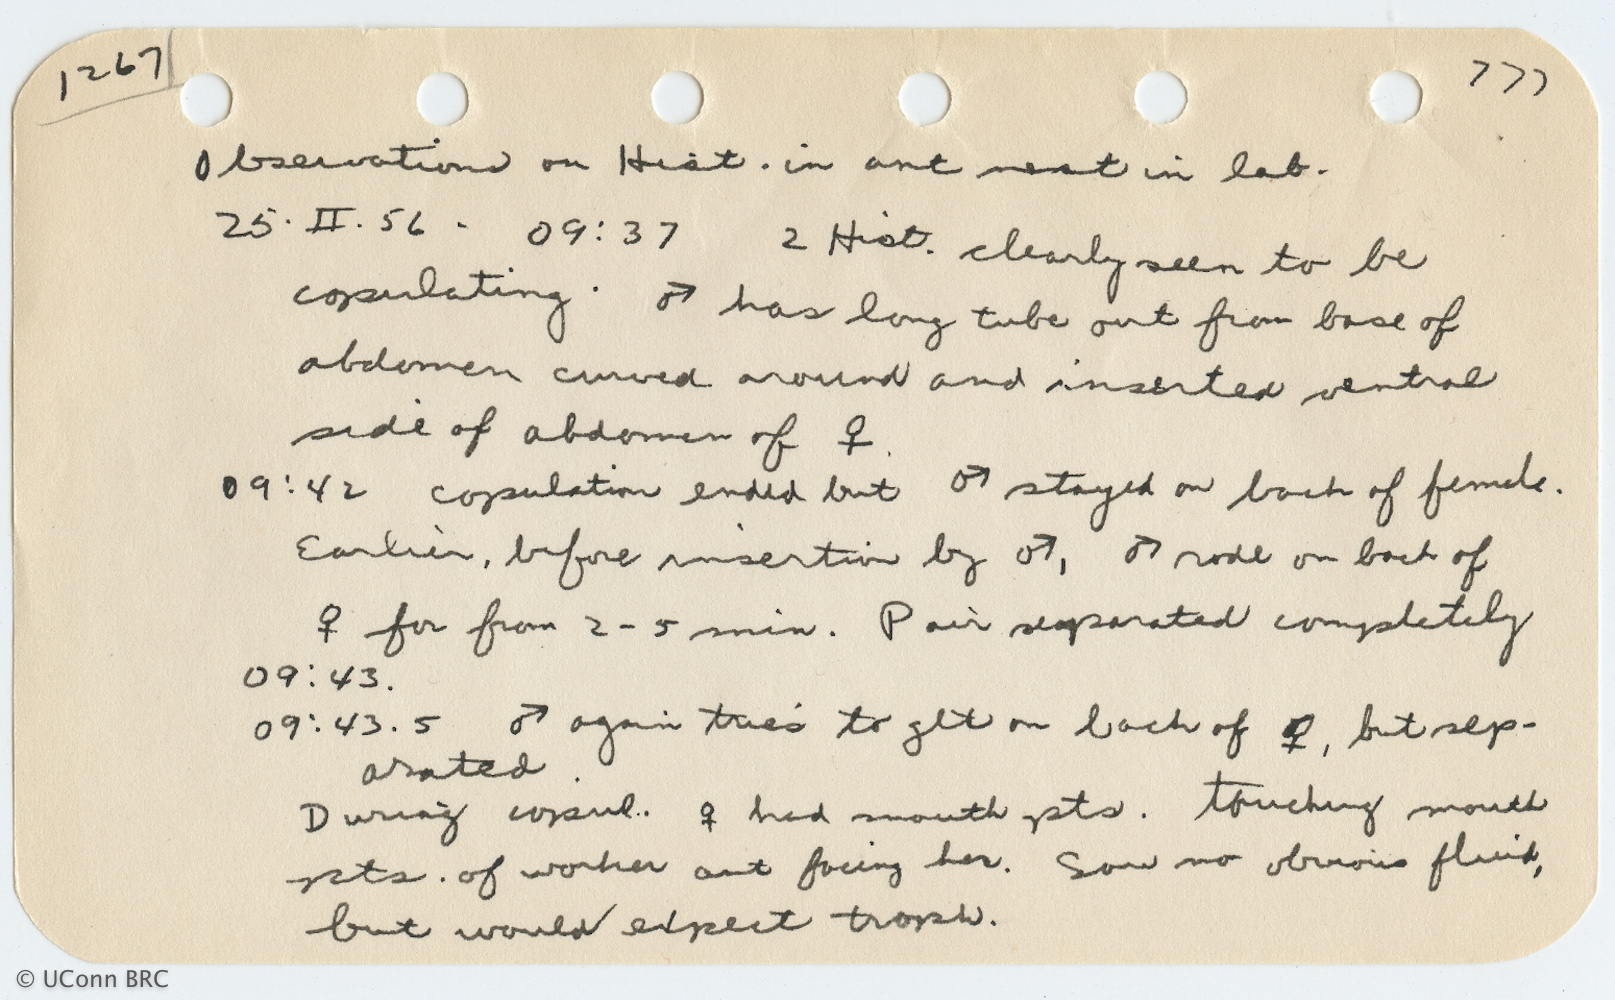 1267 777
Observations on Hist. in ant nest in lab.
25.II.56. 09:37 2 Hist. clearly seen to be
copulating. ♂ has long tube out from base of
abdomen curved around and inserted ventral
side of abdomen of ♀.
09:42 copulation ended but ♂ stayed on back of female.
Earlier, before insertion by ♂, ♂ rode on back of
♀ for from 2-5 min. Pair separated completely
09:43.
09:43.5 ♂ again tries to get on back of ♀, but sep-
arated.
During copul. ♀ had mouth pts. touching mouth
pts. of worker ant facing her. Saw no obvious fluid,
but would expect troph.
© UConn BRC